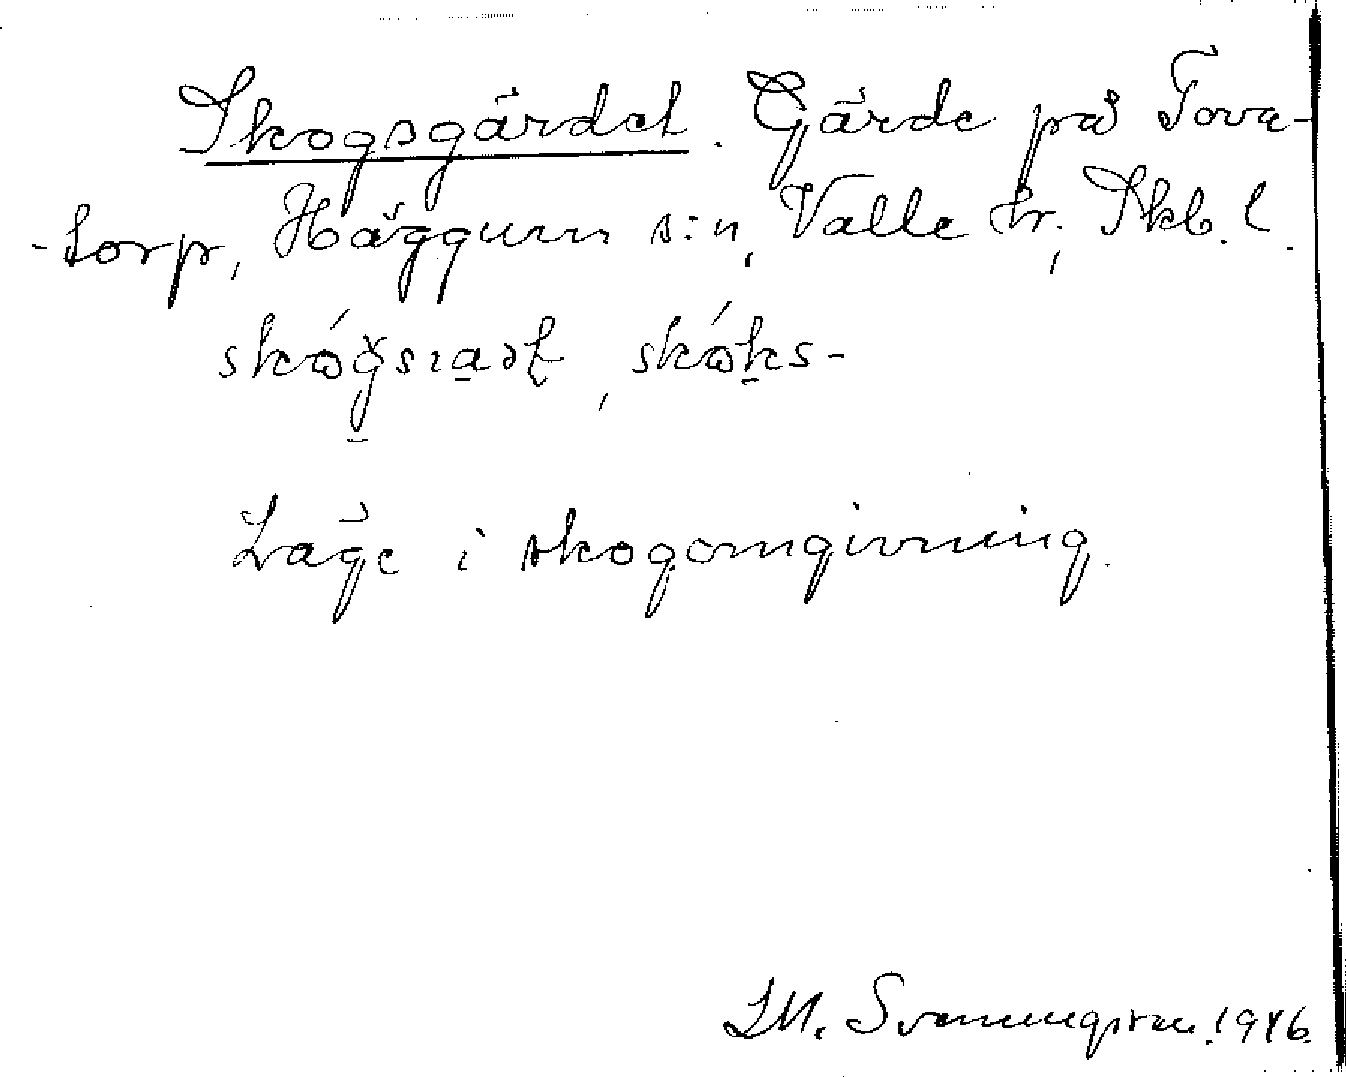 Skogsgärdet. Gärde på Tova-
-torp, Häggum s:n, Valle hr, Skb. l.
skógsıadt, skóks-
Läge i skogomgivning.
I.M. Svenungsson. 1946.